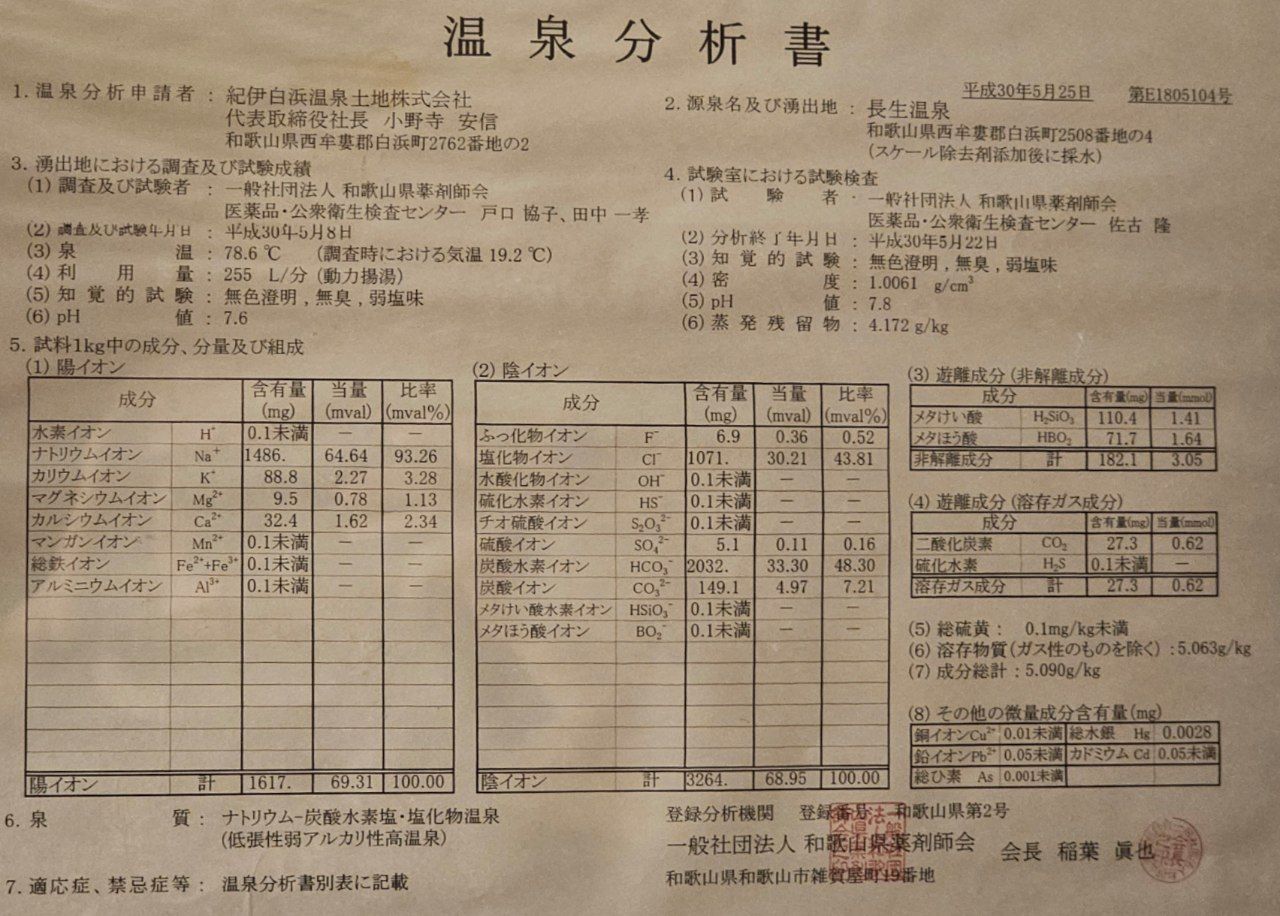 温泉分析書
平成30年5月25日 第E1805104号
1. 温泉分析申請者 : 紀伊白浜温泉土地株式会社
代表取締役社長 小野寺 安信
和歌山県西牟婁郡白浜町2762番地の2
2. 源泉名及び湧出地 : 長生温泉
和歌山県西牟婁郡白浜町2508番地の4
(スケール除去剤添加後に採水)
3. 湧出地における調査及び試験成績
(1) 調査及び試験者 : 一般社団法人 和歌山県薬剤師会
医薬品・公衆衛生検査センター 戸口 協子、田中 一孝
(2) 調査及び試験年月日 : 平成30年5月8日
(3) 泉温 : 78.6 ℃ (調査時における気温 19.2 ℃)
(4) 利用量 : 255 L/分 (動力揚湯)
(5) 知覚的試験 : 無色澄明 , 無臭 , 弱塩味
(6) pH値 : 7.6
4. 試験室における試験検査
(1) 試験者 : 一般社団法人 和歌山県薬剤師会
医薬品・公衆衛生検査センター 佐古 隆
(2) 分析終了年月日 : 平成30年5月22日
(3) 知覚的試験 : 無色澄明 , 無臭 , 弱塩味
(4) 密度 : 1.0061 g/cm³
(5) pH値 : 7.8
(6) 蒸発残留物 : 4.172 g/kg
5. 試料1kg中の成分、分量及び組成
(1) 陽イオン
成分 含有量(mg) 当量(mval) 比率(mval%)
水素イオン H⁺ 0.1未満 － －
ナトリウムイオン Na⁺ 1486. 64.64 93.26
カリウムイオン K⁺ 88.8 2.27 3.28
マグネシウムイオン Mg²⁺ 9.5 0.78 1.13
カルシウムイオン Ca²⁺ 32.4 1.62 2.34
マンガンイオン Mn²⁺ 0.1未満 － －
総鉄イオン Fe²⁺+Fe³⁺ 0.1未満 － －
アルミニウムイオン Al³⁺ 0.1未満 － －
陽イオン 計 1617. 69.31 100.00
(2) 陰イオン
成分 含有量(mg) 当量(mval) 比率(mval%)
ふっ化物イオン F⁻ 6.9 0.36 0.52
塩化物イオン Cl⁻ 1071. 30.21 43.81
水酸化物イオン OH⁻ 0.1未満 － －
硫化水素イオン HS⁻ 0.1未満 － －
チオ硫酸イオン S₂O₃²⁻ 0.1未満 － －
硫酸イオン SO₄²⁻ 5.1 0.11 0.16
炭酸水素イオン HCO₃⁻ 2032. 33.30 48.30
炭酸イオン CO₃²⁻ 149.1 4.97 7.21
メタけい酸水素イオン HSiO₃⁻ 0.1未満 － －
メタほう酸イオン BO₂⁻ 0.1未満 － －
陰イオン 計 3264. 68.95 100.00
(3) 遊離成分 (非解離成分)
成分 含有量(mg) 当量(mmol)
メタけい酸 H₂SiO₃ 110.4 1.41
メタほう酸 HBO₂ 71.7 1.64
非解離成分 計 182.1 3.05
(4) 遊離成分 (溶存ガス成分)
成分 含有量(mg) 当量(mmol)
二酸化炭素 CO₂ 27.3 0.62
硫化水素 H₂S 0.1未満 －
溶存ガス成分 計 27.3 0.62
(5) 総硫黄 : 0.1mg/kg未満
(6) 溶存物質 (ガス性のものを除く) : 5.063g/kg
(7) 成分総計 : 5.090g/kg
(8) その他の微量成分含有量 (mg)
銅イオンCu²⁺ 0.01未満 総水銀 Hg 0.0028
鉛イオンPb²⁺ 0.05未満 カドミウム Cd 0.05未満
総ひ素 As 0.001未満
6. 泉質 : ナトリウム−炭酸水素塩・塩化物温泉
(低張性弱アルカリ性高温泉)
7. 適応症、禁忌症等 : 温泉分析書別表に記載
登録分析機関 登録番号 和歌山県第2号
一般社団法人 和歌山県薬剤師会 会長 稲葉 眞也
和歌山県和歌山市雑賀屋町19番地